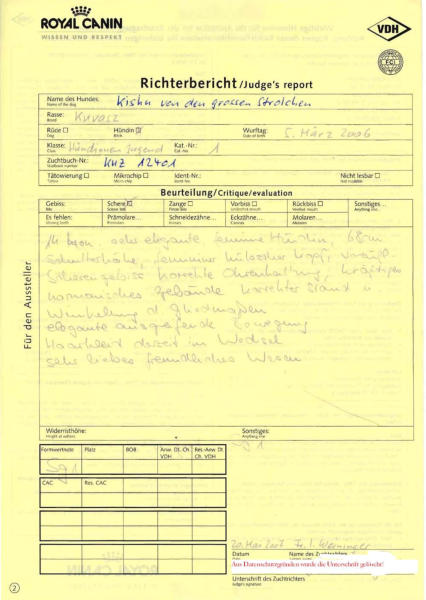 ROYAL CANIN
WISSEN UND RESPEKT
VDH
FCI
Richterbericht/Judge's report
Name des Hundes: Kishu von den grossen Strolchen
Name of the dog
Rasse: Kuvasz
Breed
Rüde Hündin Wurftag: 5. März 2006
Dog Bitch Date of birth
Klasse: Hündinnen Jugend Kat.-Nr.: 1
Class Cat.-No.
Zuchtbuch-Nr.: KUZ 12401
Studbook number
Tätowierung Mikrochip Ident-Nr.: Nicht lesbar
Tattoo Micro-chip Ident-No. Not readable
Beurteilung/Critique/evaluation
Gebiss: Schere Zange Vorbiss Rückbiss Sonstiges...
Bite Scissor bite Pincer bite Undershot mouth Overshot mouth Anything else
Es fehlen: Prämolare... Schneidezähne... Eckzähne... Molaren...
Missing teeth Premolars Incisors Canines Molars
sehr elegante feminine Hündin, 68cm
Schulterhöhe, femininer hübscher Kopf,
Scherengebiss korrekte Ohrenhaltung, kräftiges
harmonisches Gebäude korrekter Stand u.
Winkelung d. Gliedmaßen
elegante ausgreifende Bewegung
Haarkleid derzeit im Wechsel
sehr liebes freundliches Wesen
Für den Aussteller
Widerristhöhe: Sonstiges:
Height at withers Anything else
Sg 1
Formwertnote Platz BOB Anw. Dt. Ch. VDH Res.-Anw Dt. Ch. VDH
Sg 1
CAC Res. CAC
20. Mai 2007 Fr. I. Weininger
Datum Name des Zuchtrichters
Aus Datenschutzgründen wurde die Unterschrift gelöscht!
Unterschrift des Zuchtrichters
Judge's signature
2